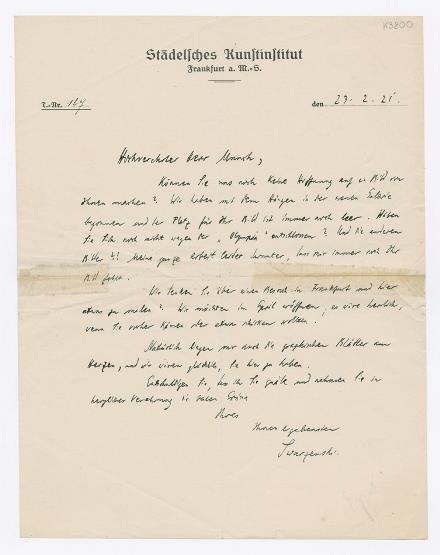 K3800
Städelsches Kunstinstitut
Frankfurt a. M.-S.
T.-Nr. 117
den 23. 2. 21.
Hochverehrter Herr Munch,
Können Sie uns noch keine Hoffnung auf ein Bild von
Ihnen machen? Wir haben mit dem Hängen in der neuen Galerie
begonnen und der Platz für Ihr Bild ist immer noch leer. Haben
Sie sich noch nicht wegen der "Olympia" entschlossen? Und die anderen
Bilder?! Meine ganze Arbeit leidet darunter, dass mir immer noch Ihr
Bild fehlt.
Wie denken Sie über einen Besuch in Frankfurt und hier
etwas zu malen? Wir möchten im April eröffnen, es wäre herrlich,
wenn Sie vorher kämen oder etwas schicken wollten.
Natürlich liegen mir auch die graphischen Blätter am
Herzen, und wir wären glücklich, sie hier zu haben.
Entschuldigen Sie, dass ich Sie quäle und nehmen Sie in
herzlicher Verehrung die besten Grüsse
Ihres
Ihnen ergebensten
Swarzenski.